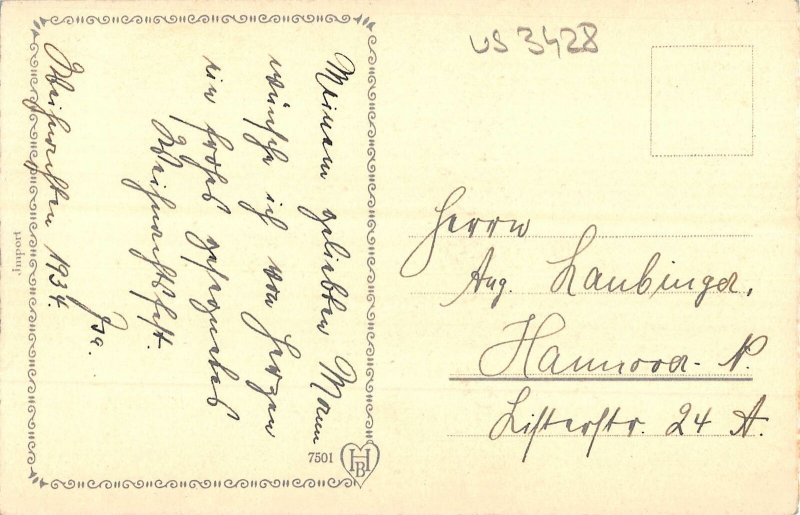 US 3428
Meinem geliebten Mann
wünsche ich von Herzen
ein frohes gesegnetes
Weihnachtsfest.
Isa.
Weihnachten 1934.
Import
7501
HB
Herrn
Aug. Laubinger,
Hannover-N.
Listerstr. 24 A.